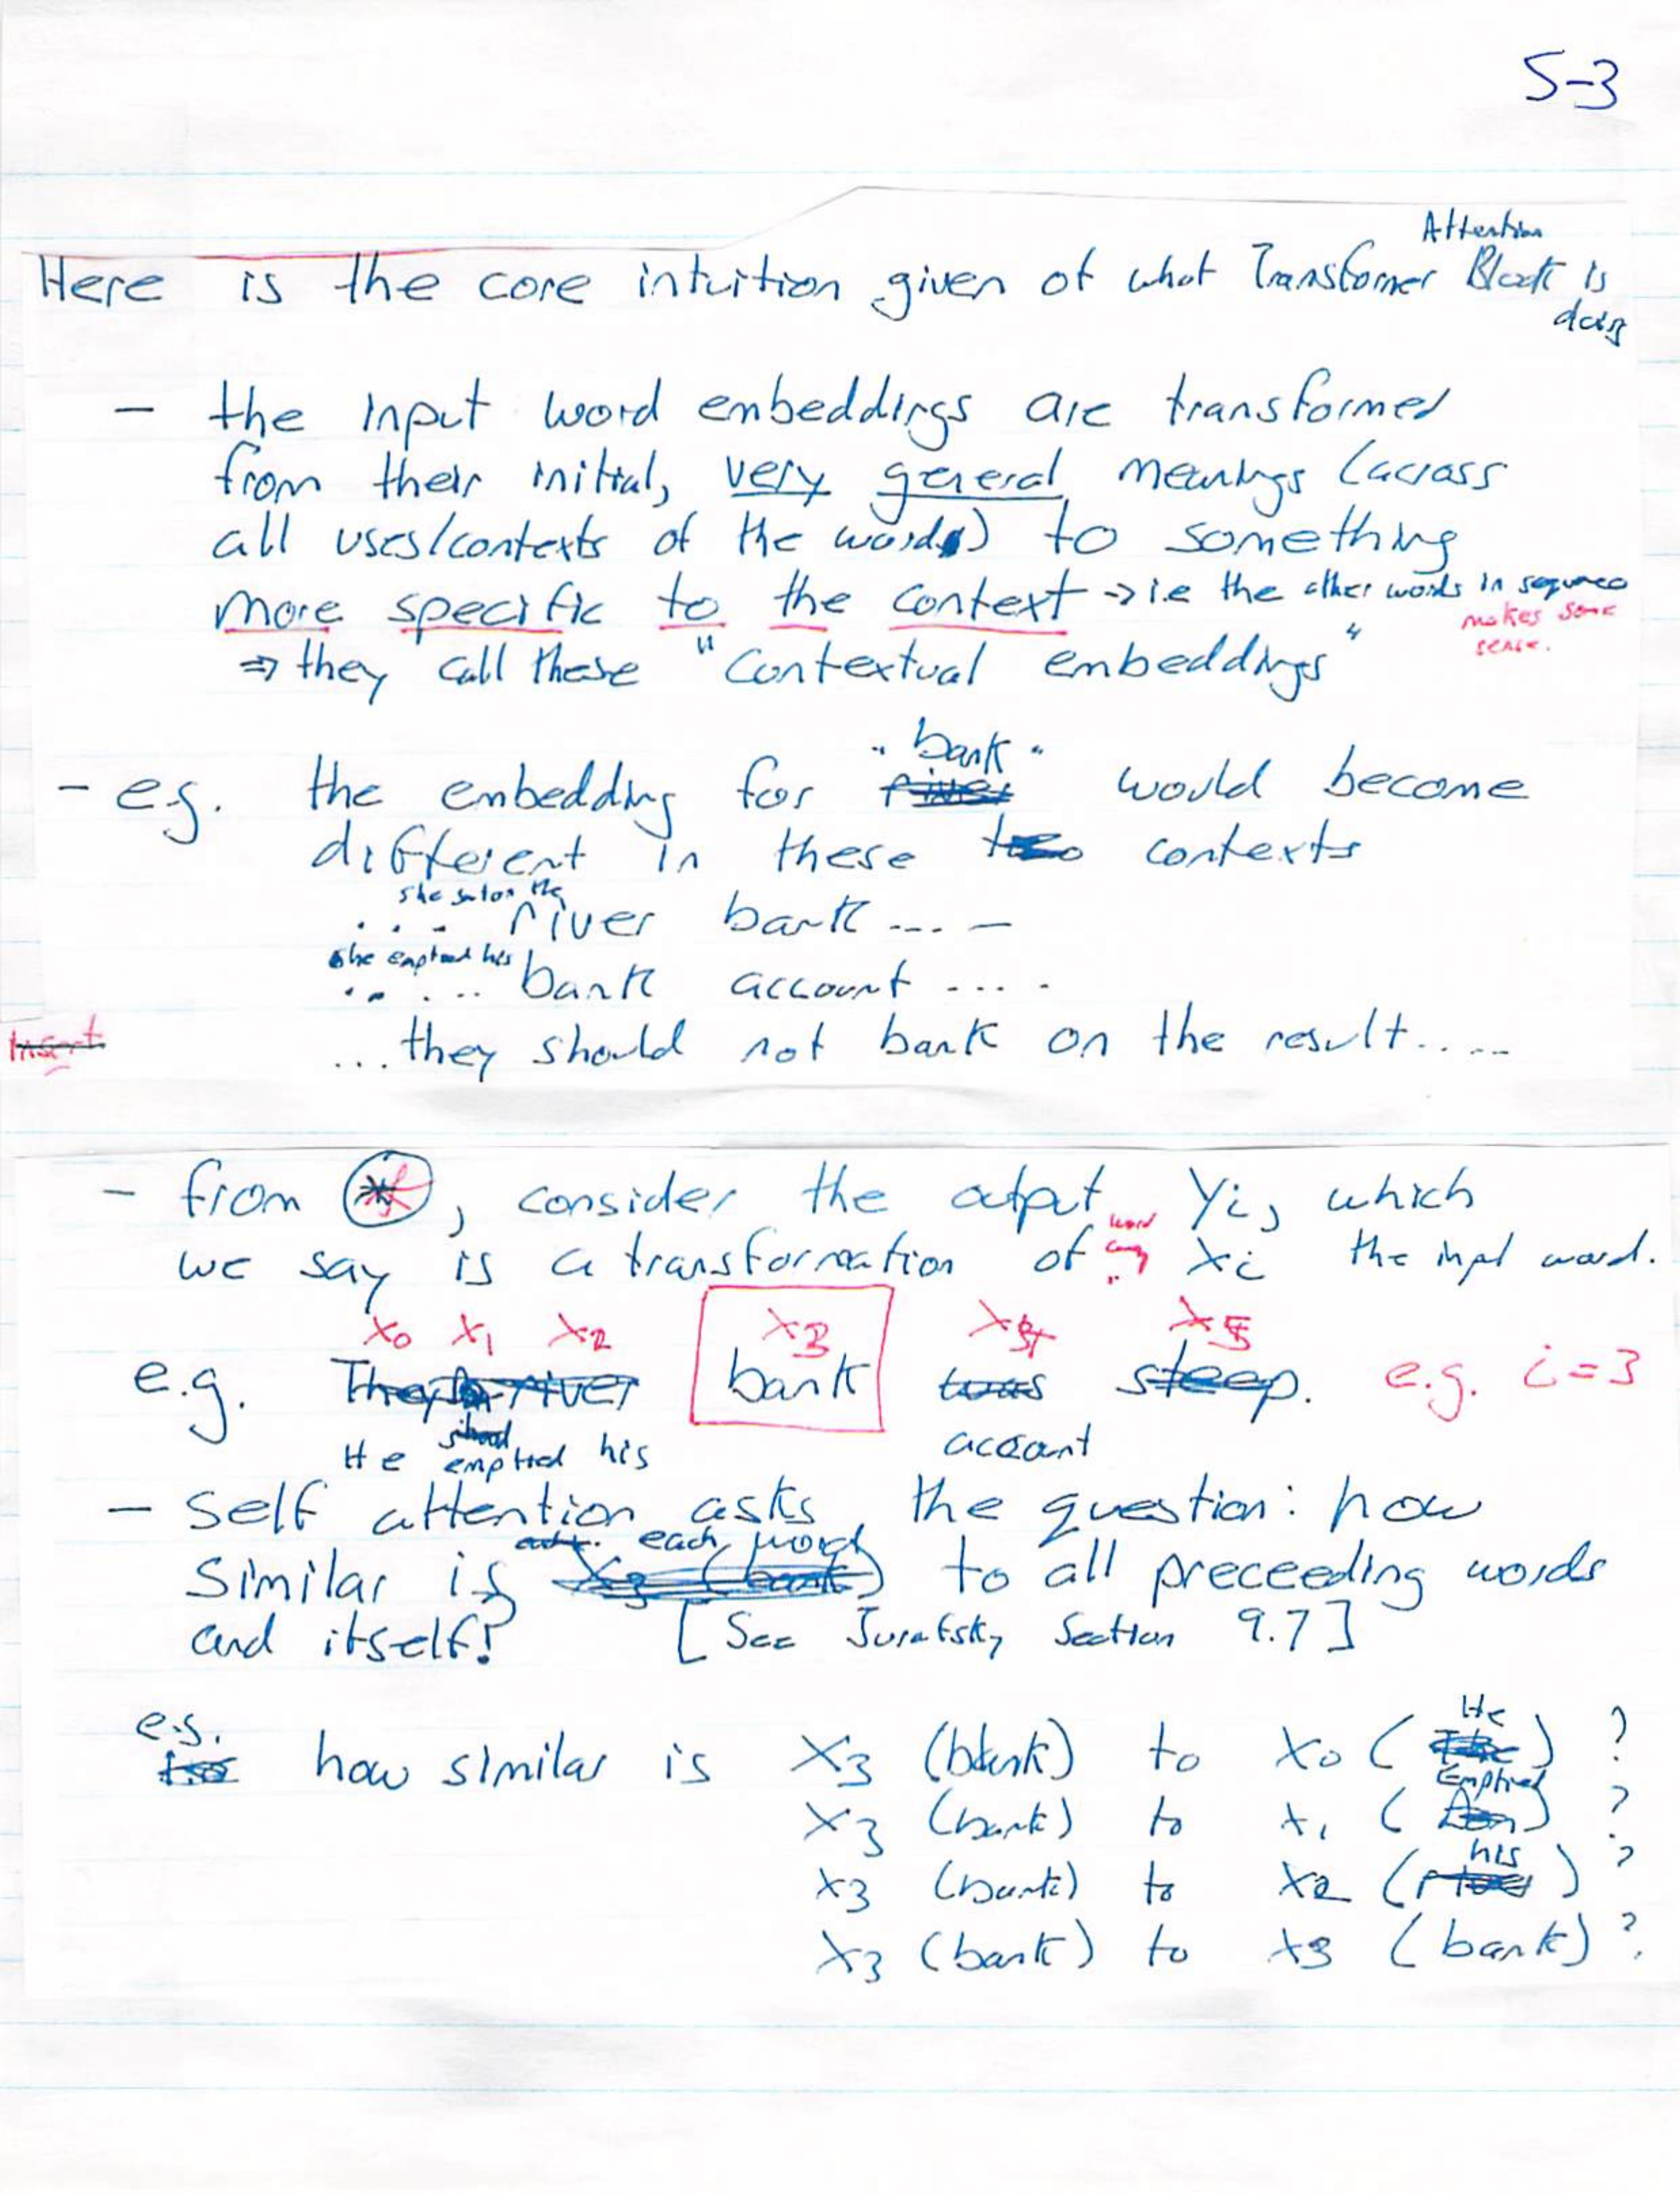 S-3
Attention
Here is the core intuition given of what Transformer Block is
doing
- the input word embeddings are transformed
from their initial, very general meanings (across
all uses/contexts of the words) to something
more specific to the context → i.e the other words in sequence
makes some
sense.
⇒ they call these "Contextual embeddings"
"bank"
- e.g. the embedding for river would become
different in these two contexts
she sat on the
.... river bank .... -
She emptied his
..... bank account ....
Insert
... they should not bank on the result.....
- from *, consider the output Yi, which
word
we say is a transformation of Xi the input word.
X0 X1 X2 X3 X4 X5
e.g. The river bank was steep. e.g. i=3
He emptied his account
- Self attention asks the question: how
each word
similar is X3 (bank) to all preceeding words
and itself? [See Jurafsky Section 9.7]
e.g. He
how similar is X3 (bank) to X0 (The) ?
Emptied
X3 (bank) to X1 ( ) ?
his
X3 (bank) to X2 (river) ?
X3 (bank) to X3 (bank) ?